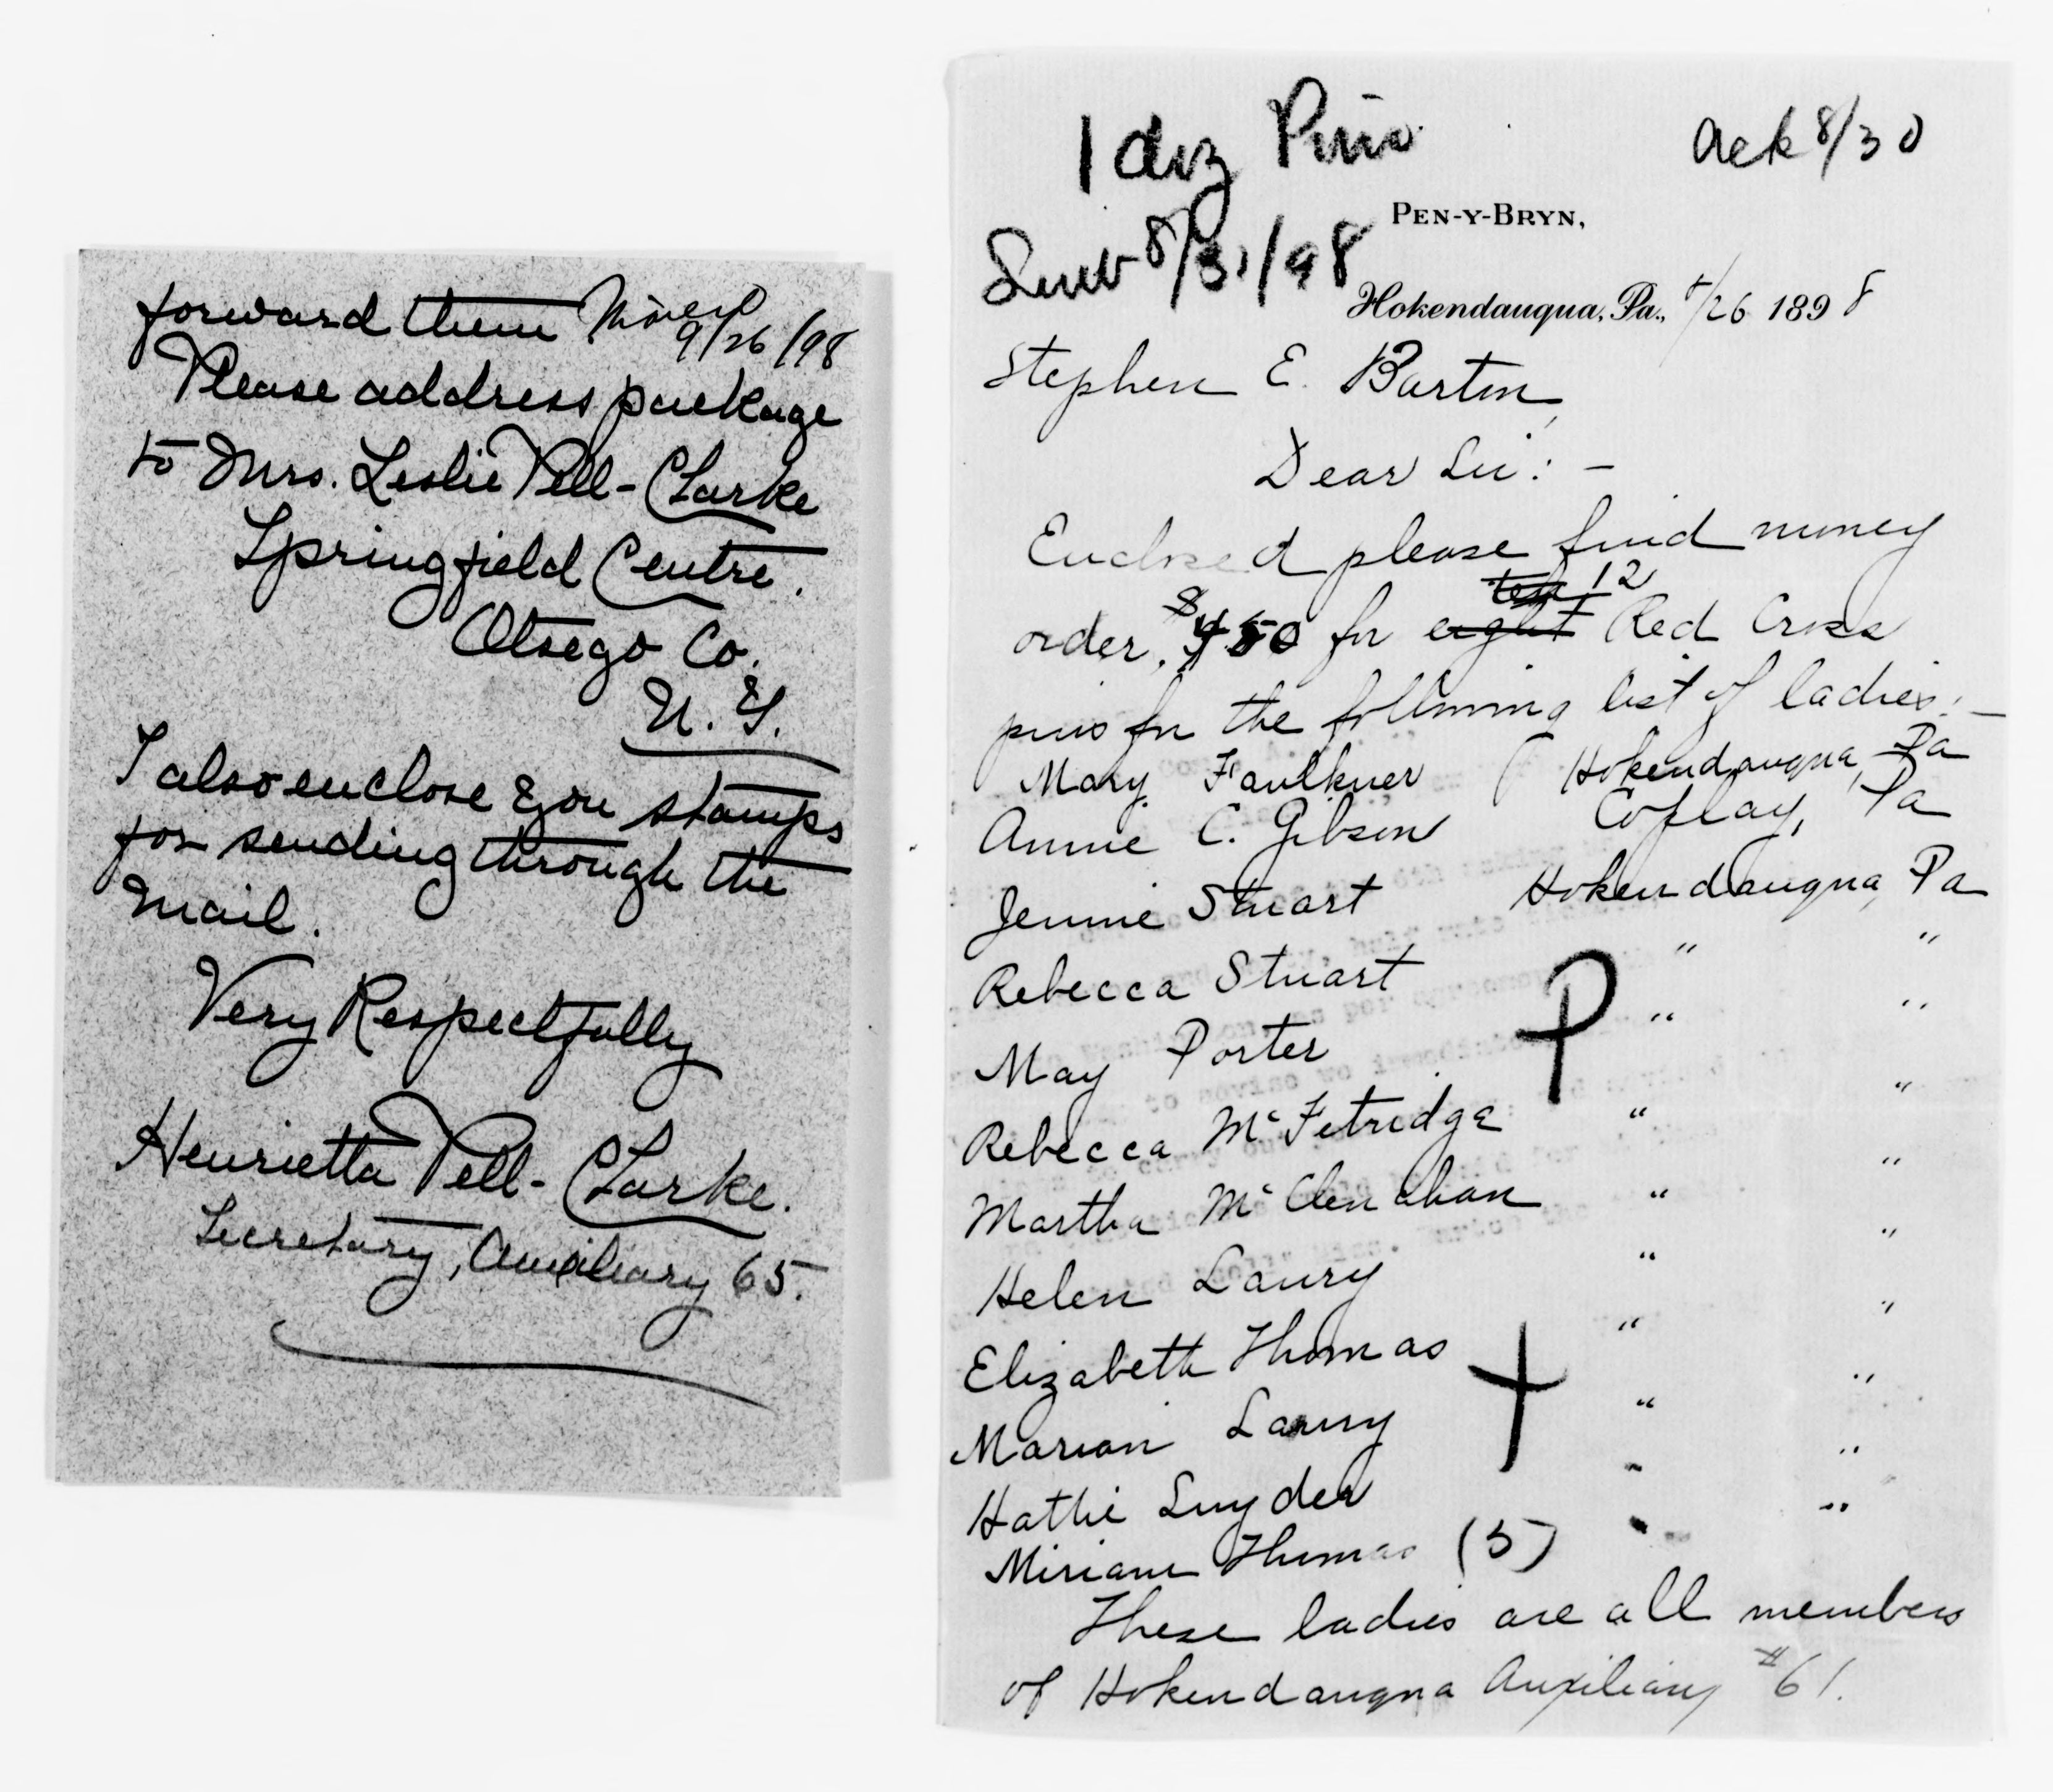 forward them
9/26/98
Please address package
to Mrs. Leslie Pell-Clarke
Springfield Centre.
Otsego Co.
N. Y.
I also enclose you stamps
for sending through the
mail.
Very Respectfully
Henrietta Pell-Clarke.
Secretary, Auxiliary 65.
1 doz Pins
Ack 8/30
Sent 8/31/98
PEN-Y-BRYN,
Hokendauqua, Pa., 8/26 1898
Stephen E. Barton,
Dear Sir: -
Enclosed please find money
ten 12
order, $4 50 for eight Red Cross
pins for the following list of ladies: -
Mary Faulkner ( Hokendauqua, Pa
Annie C. Gibson Coplay, Pa
Jennie Stuart Hokendauqua, Pa
Rebecca Stuart " "
May Porter " "
Rebecca McFetridge " "
Martha McClenahan " "
Helen Laury " "
Elizabeth Thomas " "
Marian Laury " "
Hattie Snyder " "
Miriam Thomas (5) " "
These ladies are all members
of Hokendauqua Auxiliary #61.